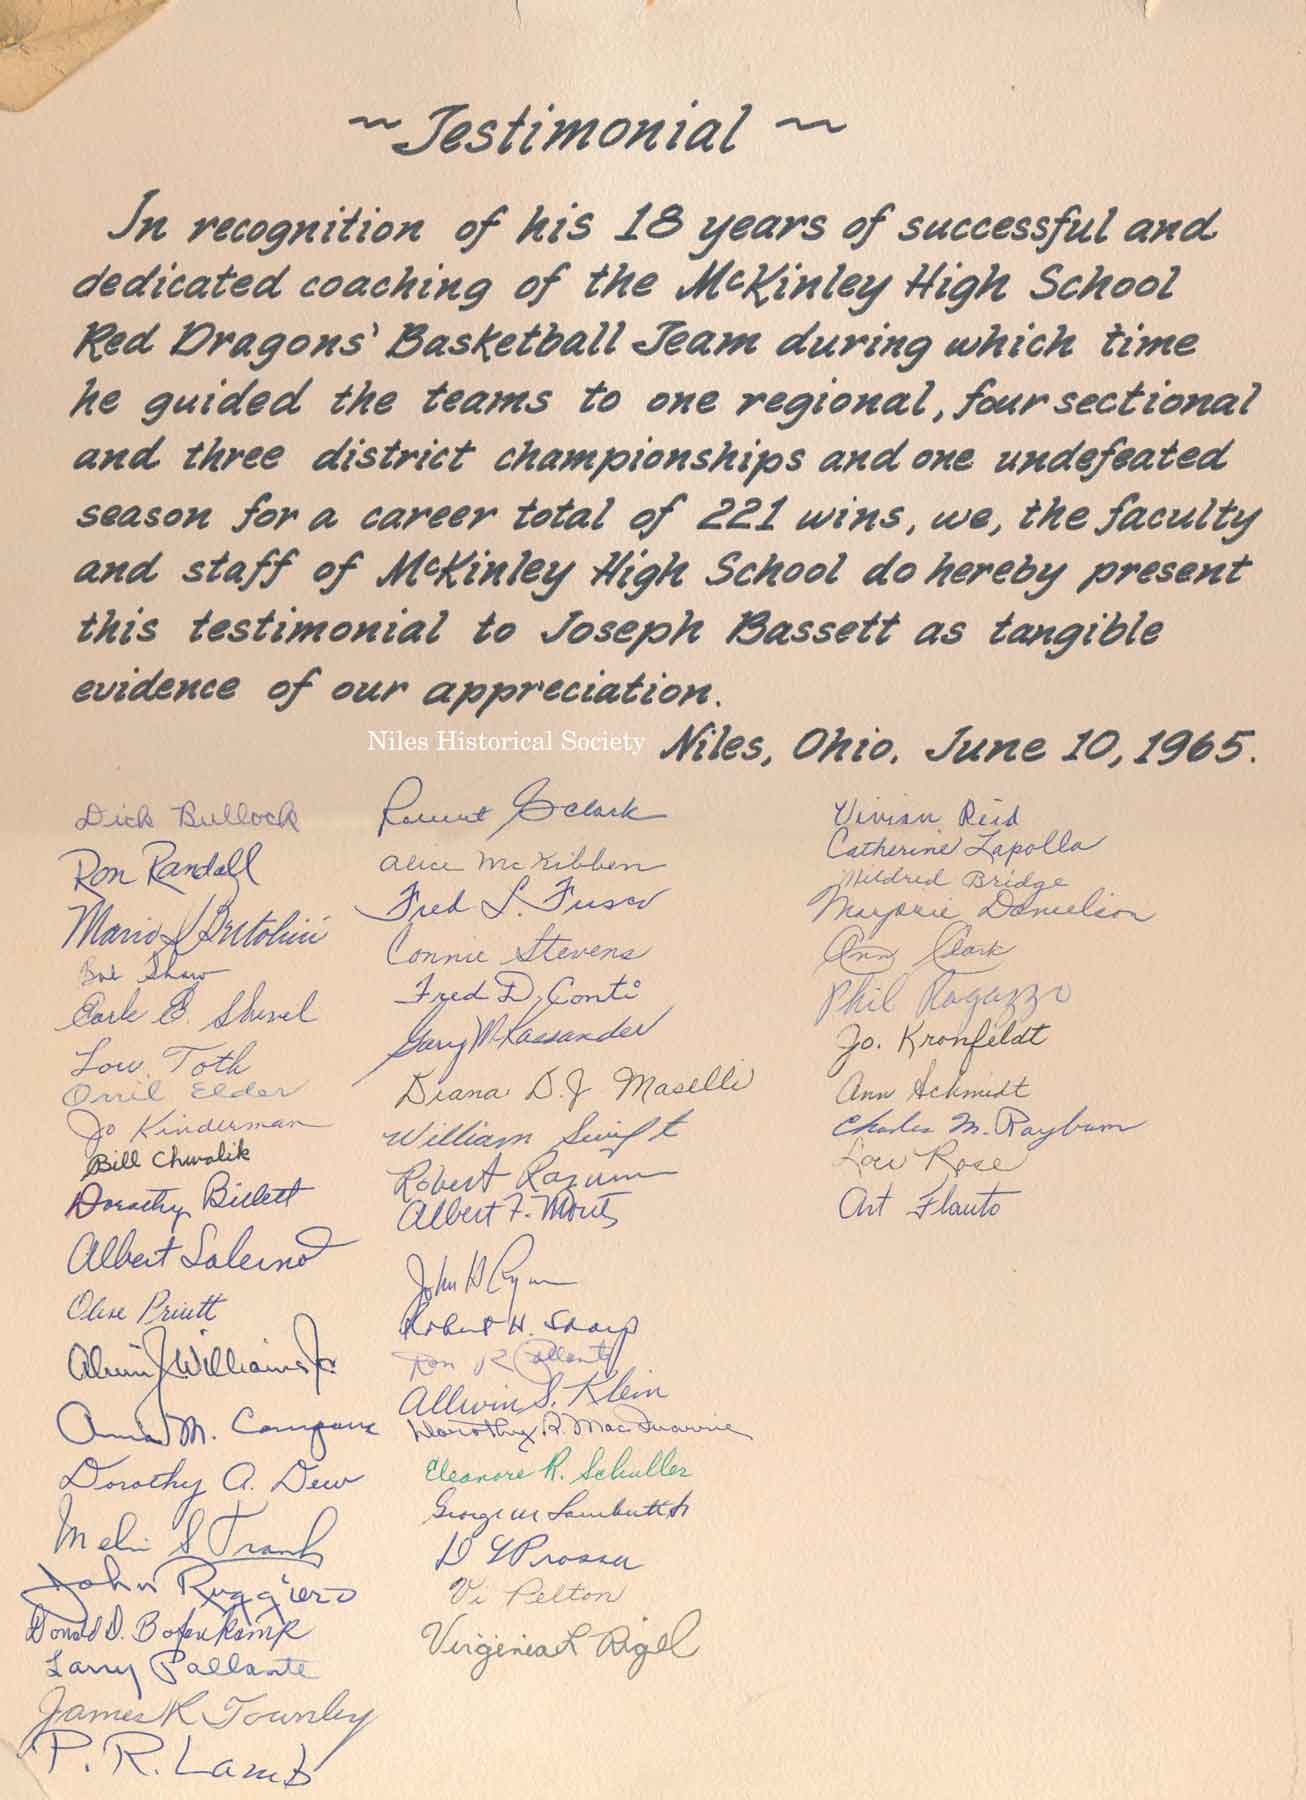 ~ Testimonial ~
In recognition of his 18 years of successful and
dedicated coaching of the McKinley High School
Red Dragons' Basketball Team during which time
he guided the teams to one regional, four sectional
and three district championships and one undefeated
season for a career total of 221 wins, we, the faculty
and staff of McKinley High School do hereby present
this testimonial to Joseph Bassett as tangible
evidence of our appreciation.
Niles Historical Society
Niles, Ohio. June 10, 1965.
Dick Bullock
Ron Randall
Mario J
Bob Shaw
E.
Lou Toth
Orril Elder
Jo Kinderman
Bill Chwalik
Dorothy
Albert Salerno
Olive Pruitt
Alvin J Williams Jr
Anna M.
Dorothy A. Dew
S
John Ruggiero
Donald D.
Larry Pallante
James R Townley
P. R. Lamb
G Clark
Alice McKibben
Fred L. Fusco
Connie Stevens
Fred D. Conti
Gary M Kassander
Diana D. J Maselli
William Swift
Robert Razum
Albert F.
John H
Robert H. Sharp
Ron R Pallante
Allwin S. Klein
Dorothy R. MacQuarrie
Eleanore R. Schuller
George W
D
Vi Pelton
Virginia L Rigel
Vivian Reid
Catherine Lapolla
Mildred Bridge
Marjorie Danielson
Ann Clark
Phil Ragazzo
Jo. Kronfeldt
Ann Schmidt
Charles M. Rayburn
Lou Rose
Art Flauto